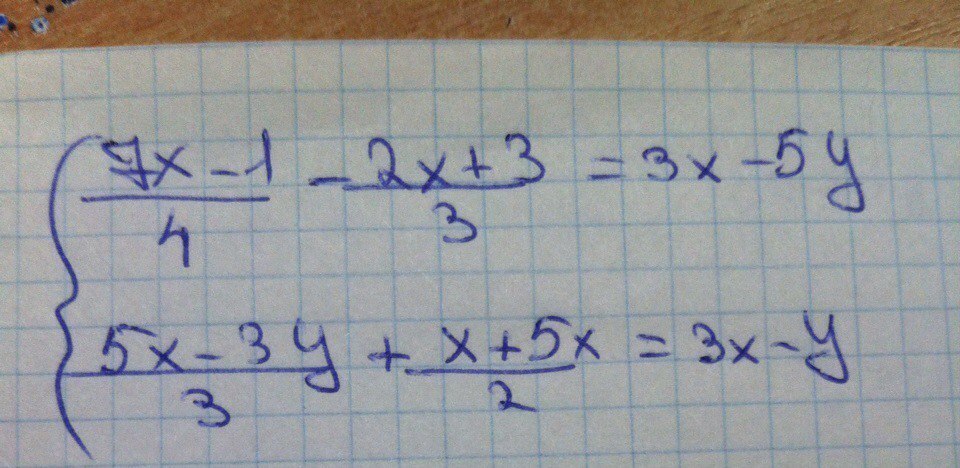 (7x-1)/4 - (2x+3)/3 = 3x-5y
(5x-3y)/3 + (x+5x)/2 = 3x-y